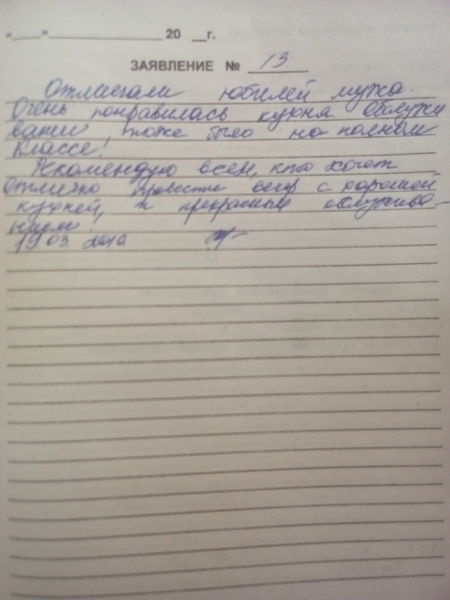 «____» ______________ 20 __г.
ЗАЯВЛЕНИЕ № 13
Отмечали юбилей мужа.
Очень понравилась кухня облужи
вание, тоже было на полном
классе!
Рекомендую всем, кто хочет
отлично провести вечер с хорошей
кухней, и прекрасным облужива-
нием!
19 03. 2016